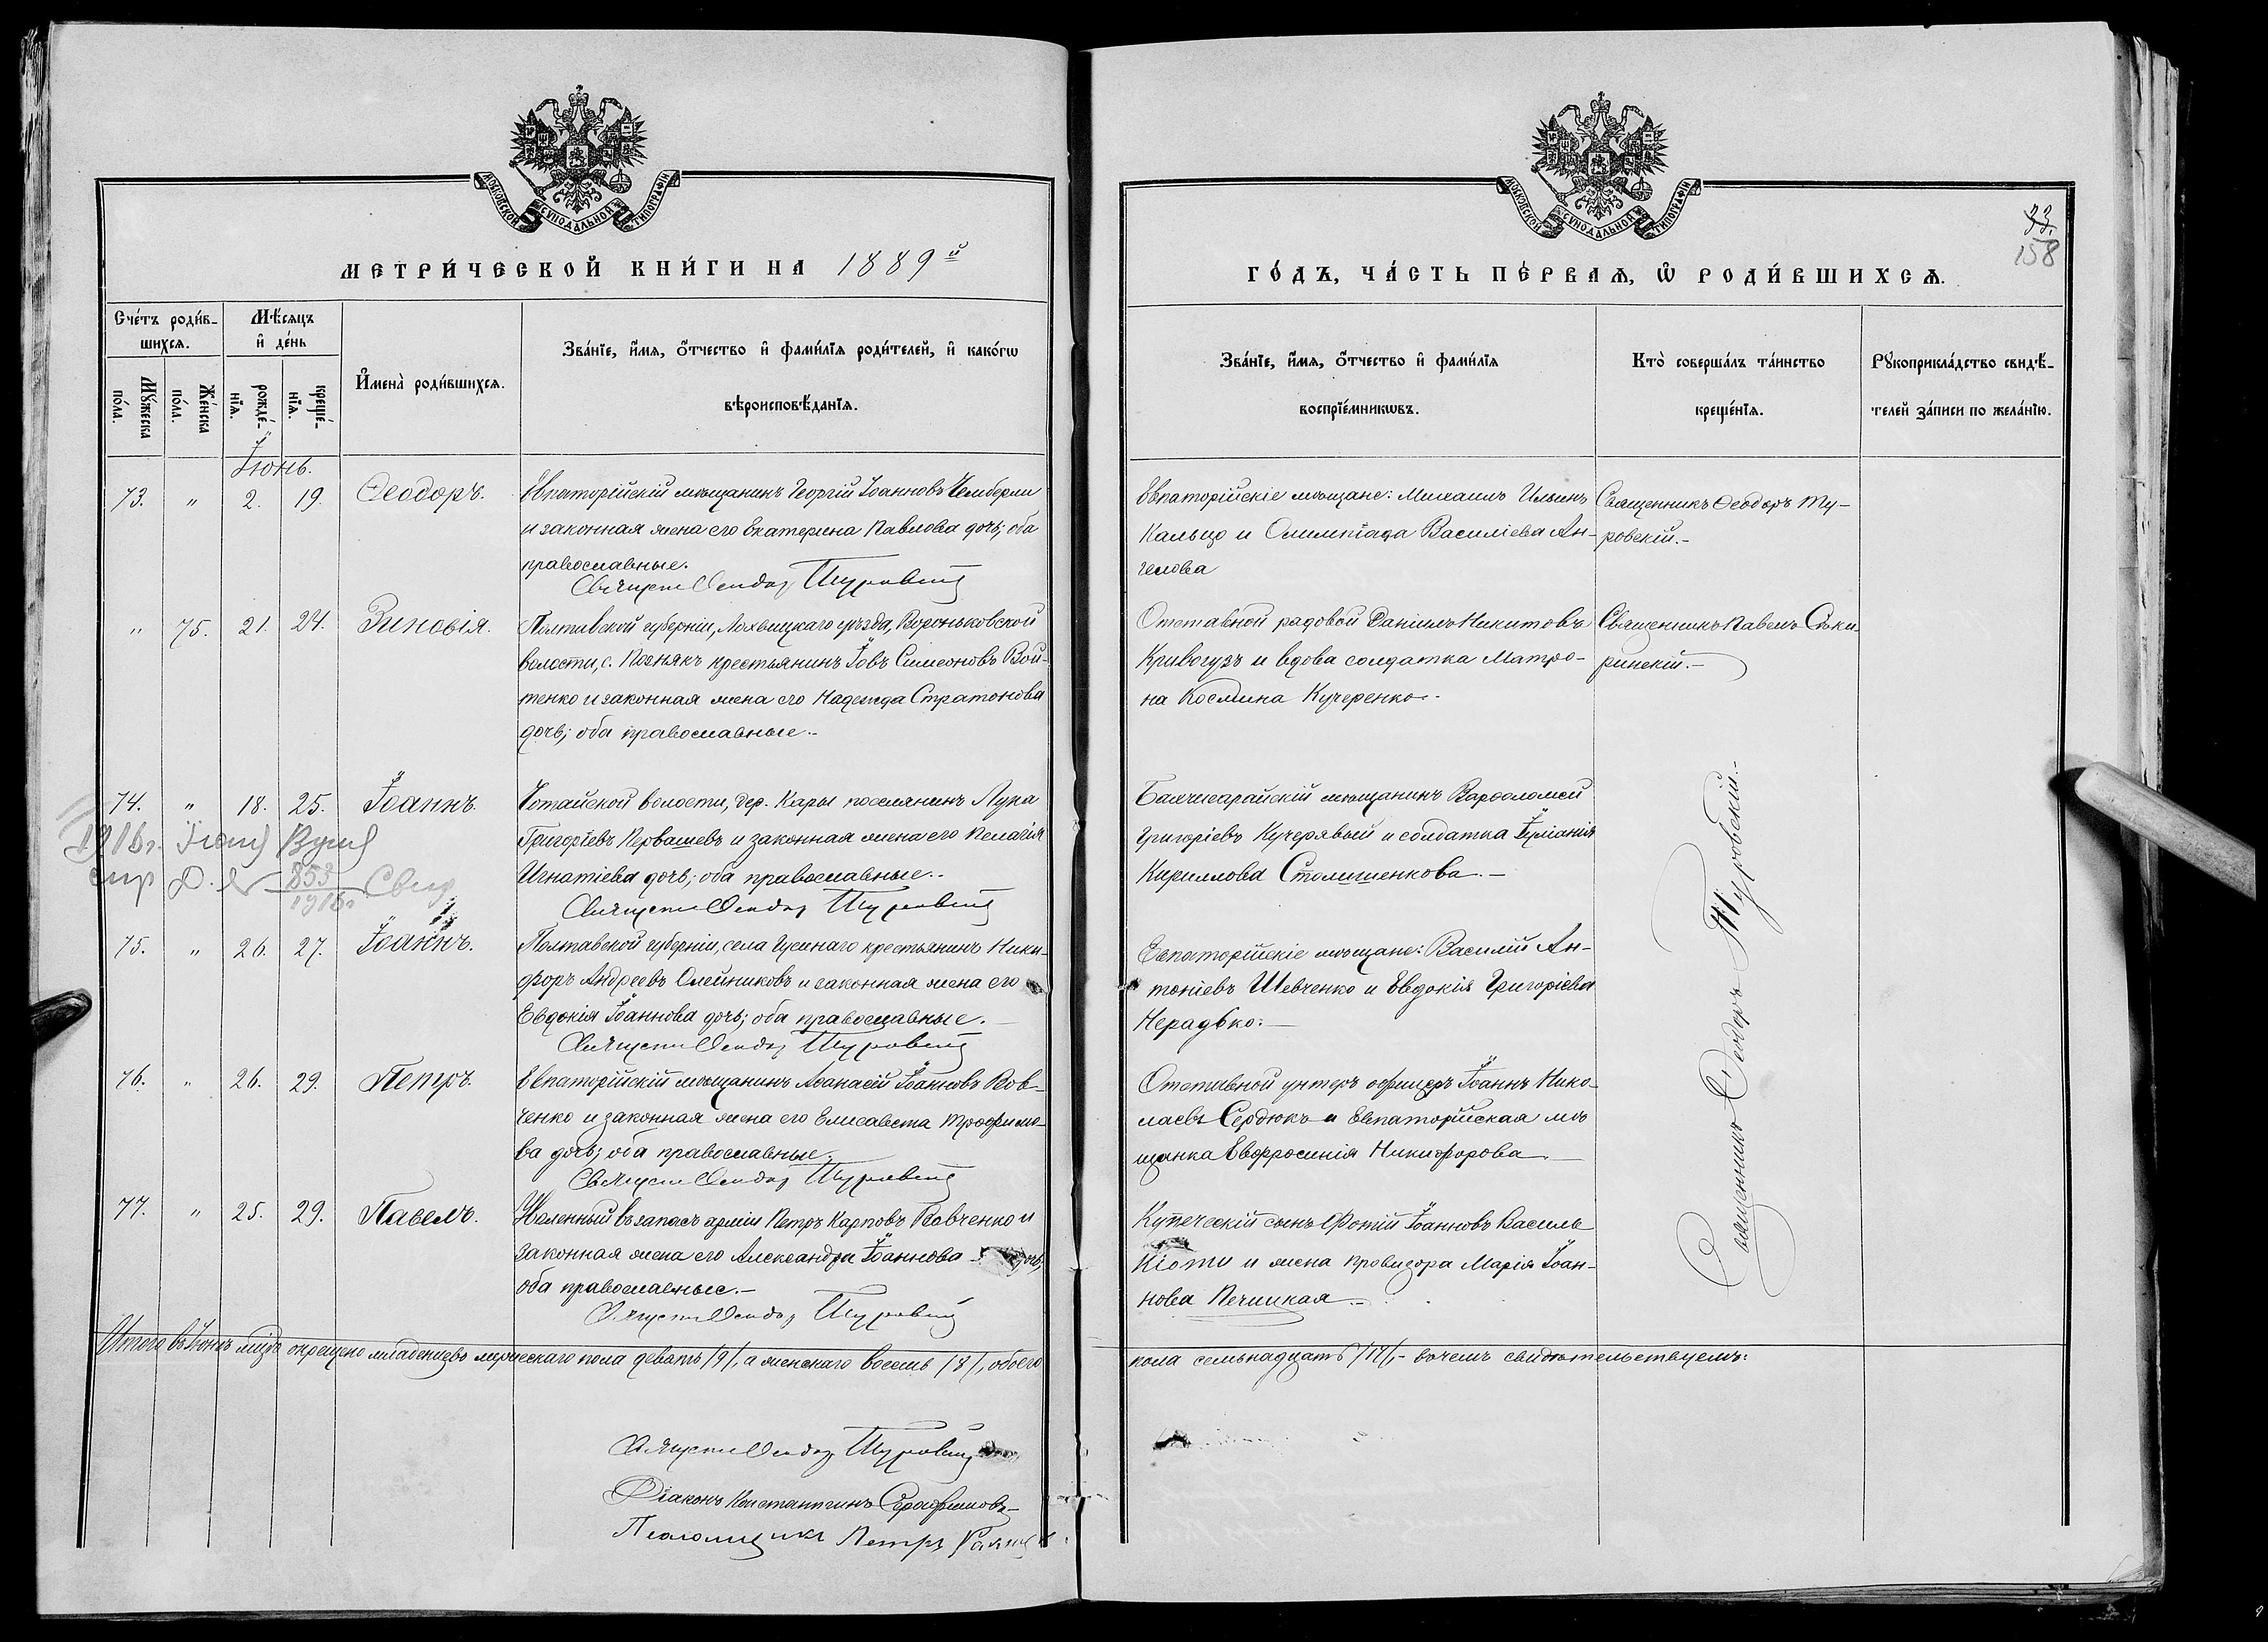 МОСКОВСКОЙ СѴНОДАЛЬНОЙ ТИПОГРАФІИ
МЕТРИ́ЧЕСКОЙ КНИ́ГИ НА 1889й
Сче́тъ роди́в-
шихсѧ.
Мѣ́сѧцъ
и҆ де́нь
Мꙋ́жеска
по́ла.
Же́нска
по́ла.
рожде́-
нїѧ.
креще́-
нїѧ.
И҆мена̀ роди́вшихсѧ.
Зва́нїе, и҆́мѧ, ѻ҆́тчество и҆ фами́лїѧ роди́телей, и҆ како́гѡ
вѣроисповѣ́данїѧ.
Іюнь.
73. " 2. 19. Ѳеодоръ. Евпаторійскій мѣщанинъ Георгій Іоанновъ Чемберли
и законная жена его Екатерина Павлова дочь; оба
православные.
Туровскій
" 75. 21. 24. Зиновія. Полтавской губерніи, Лохвицкаго уѣзда, Вороньковской
волости, с. Познякъ крестьянинъ Іовъ Симеоновъ Вой-
тенко и законная жена его Надежда Стратонова
дочь; оба православные.-
74. " 18. 25. Іоаннъ. Чотайской волости, дер. Кары поселянинъ Лука
Григоріевъ Первашевъ и законная жена его Пелагія
Игнатіева дочь; оба православные.-
Туровскій
1916г.
853
1916г.
75. " 26. 27. Іоаннъ. Полтавской губерніи, села Гусинаго крестьянинъ Ники-
форъ Андреевъ Олейниковъ и законная жена его
Евдокія Іоаннова дочь; оба православные.
Туровскій
76. " 26. 29. Петръ. Евпаторійскій мѣщанинъ Аѳанасій Іоанновъ Вов-
ченко и законная жена его Елисавета Трофимо-
ва дочь; оба православные.
Туровскій
77. " 25. 29. Павелъ. Уволенный въ запасъ арміи Петръ Карповъ Вовченко и
законная жена его Александра Іоаннова дочь;
оба православные.-
Туровскій
Итого въ Іюнѣ мцѣ окрещено младенцевъ мужескаго пола девять /9/, а женскаго восемь /8/, обоего
Туровскій
Діаконъ Константинъ Серафимовъ
Псаломщикъ Петръ
МОСКОВСКОЙ СѴНОДАЛЬНОЙ ТИПОГРАФІИ
33.
158
ГО́ДЪ, ЧА́СТЬ ПЕ́РВАѦ, Ѡ҆ РОДИ́ВШИХСѦ.
Зва́нїе, и҆́мѧ, ѻ҆́тчество и҆ фами́лїѧ
воспрїе́мникѡвъ.
Кто̀ соверша́лъ та́инство
креще́нїѧ.
Рꙋкоприкла́дство свидѣ́-
телей за́писи по жела́нїю.
Евпаторійскіе мѣщане: Михаилъ Ильинъ
Кальцо и Олимпіада Василіева Ан-
гелова
Священникъ Ѳеодоръ Ту-
ровскій.-
Отставной рядовой Даніилъ Никитовъ
Кривогузъ и вдова солдатка Матро-
на Космина Кучеренко.-
Священникъ Павелъ Сѣки-
ринскій.-
Бахчисарайскій мѣщанинъ Варѳоломей
Григоріевъ Кучерявый и солдатка Іуліанія
Кириллова Столишенкова.-
Евпаторійскіе мѣщане: Василій Ан-
тоніевъ Шевченко и Евдокія Григоріева
Нерадько.-
Отставной унтеръ офицеръ Іоаннъ Нико-
лаевъ Сердюкъ и Евпаторійская мѣ
щанка Евфросинія Никифорова.
Купеческій сынъ Фотій Іоанновъ Василь
Кіоти и жена провизора Марія Іоан-
нова Печицкая.-
Священникъ Ѳеодоръ Туровскій.-
пола семьнадцать /17/,- вочемъ свидѣтельствуемъ: